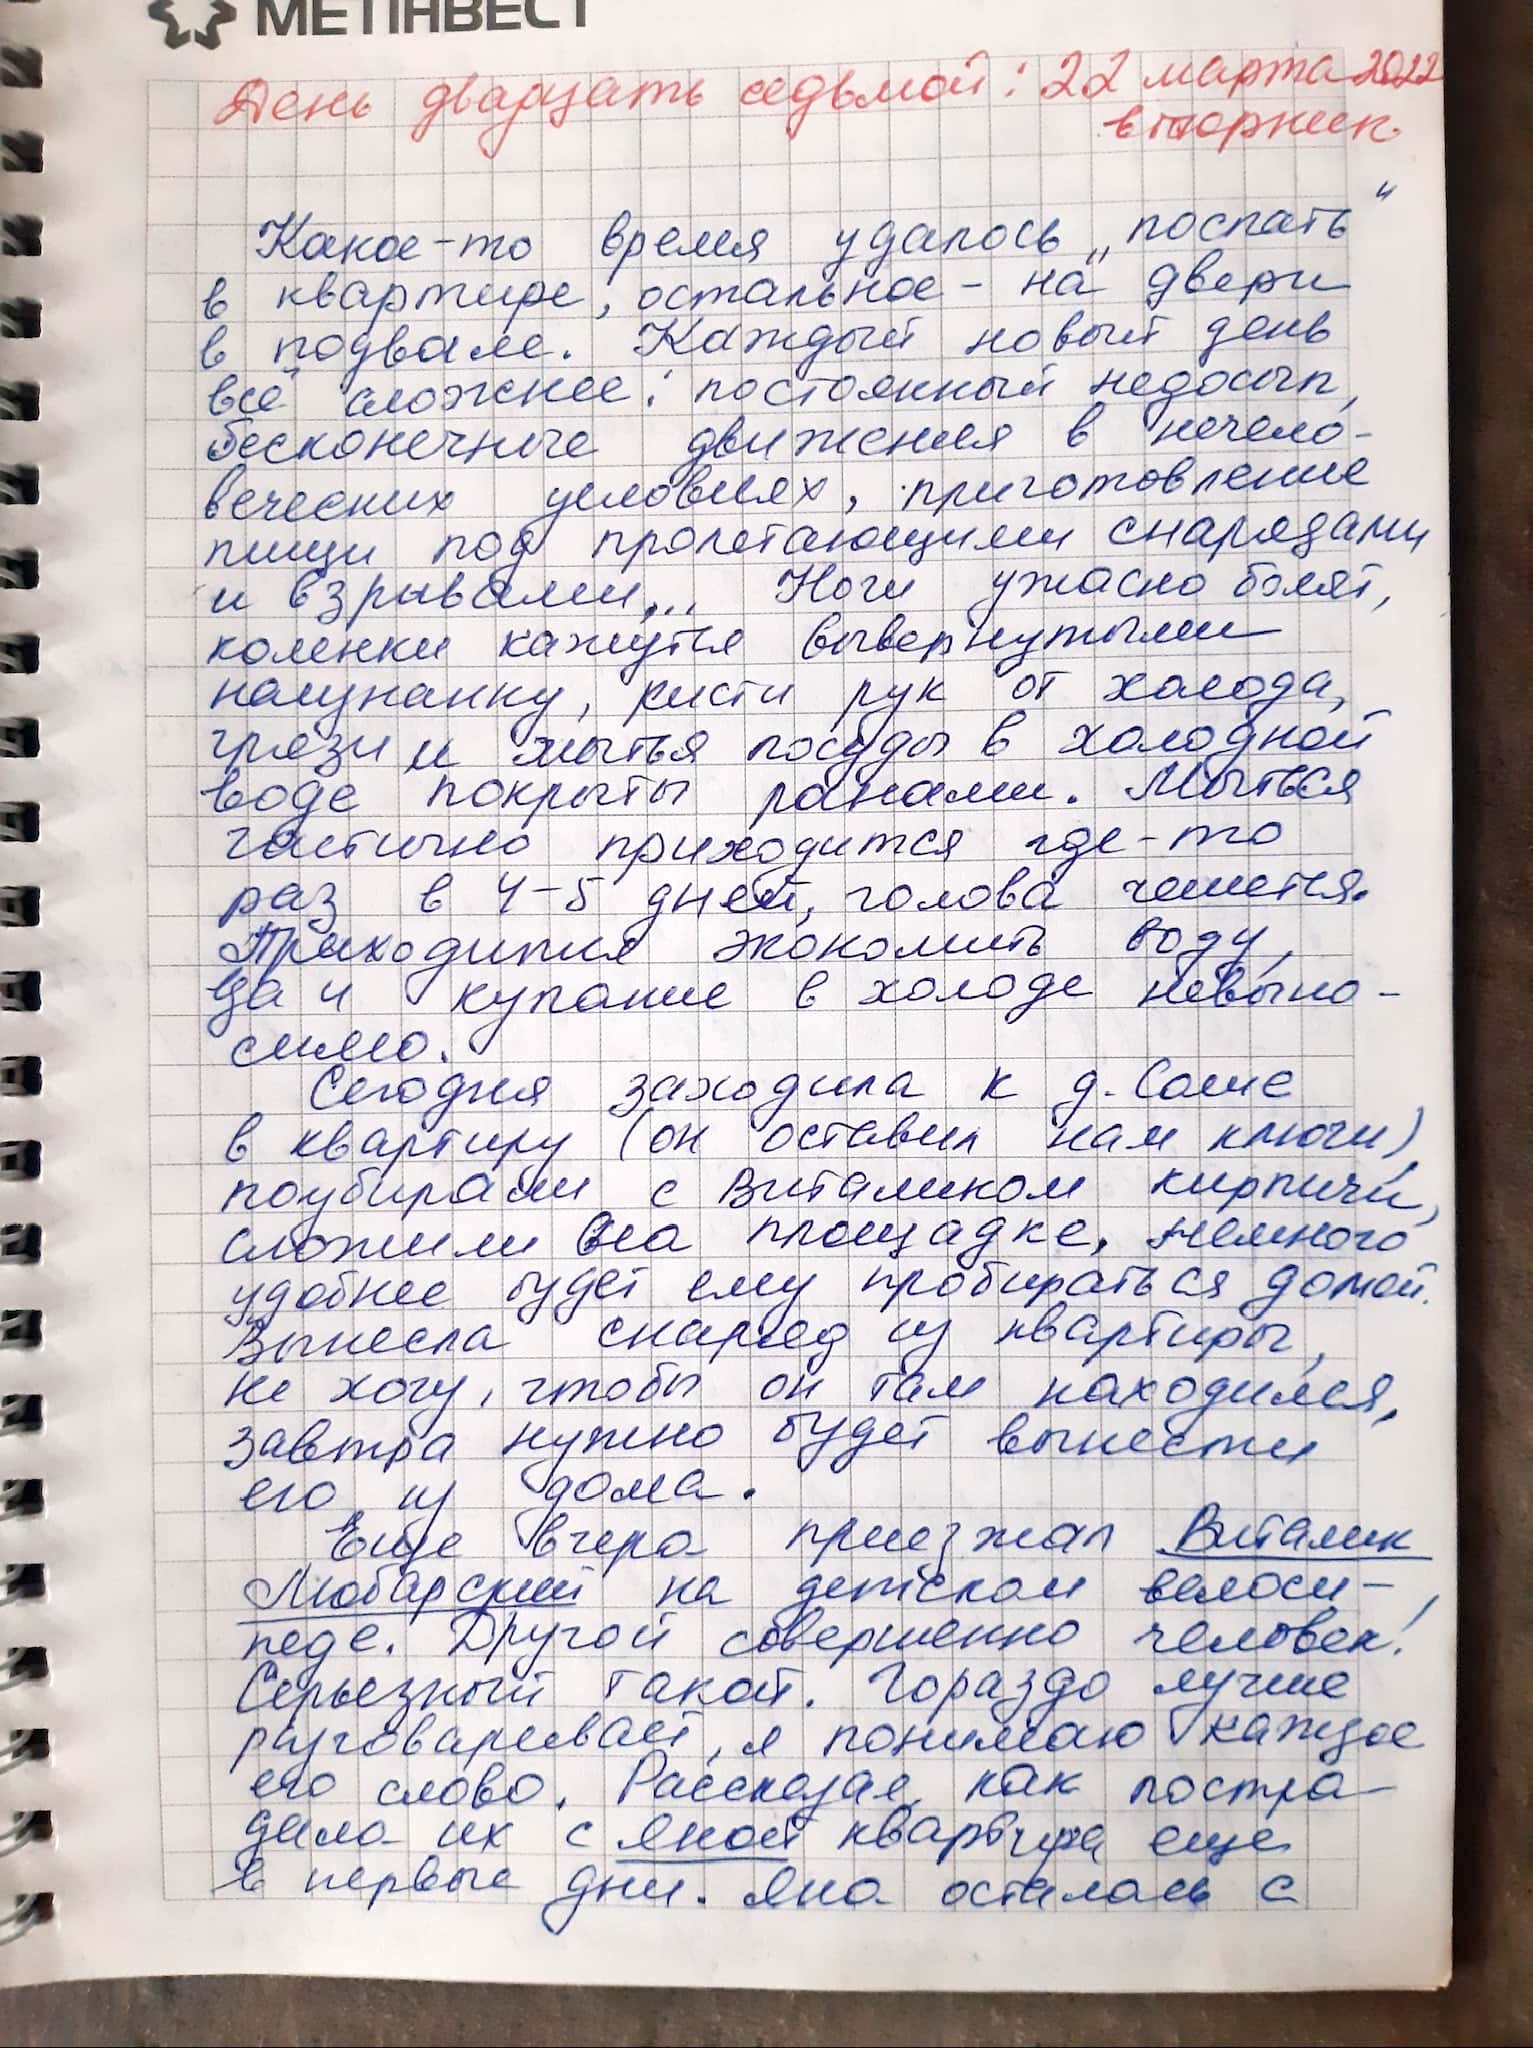 МЕТІНВЕСТ
День двадцать седьмой: 22 марта 2022
вторник.
Какое-то время удалось „поспать"
в квартире, остальное - на двери
в подвале. Каждый новый день
всё сложнее: постоянный недосып,
бесконечные движения в нечело-
веческих условиях, приготовление
пищи под пролетающими снарядами
и взрывами... Ноги ужасно болят,
коленки кажутся вывернутыми
наизнанку, кисти рук от холода,
грязи и мытья посуды в холодной
воде покрыты ранами. Мыться
частично приходится где-то
раз в 4-5 дней, голова чешется.
Приходится экономить воду,
да и купание в холоде невыно-
симо.
Сегодня заходила к д. Саше
в квартиру (он оставил нам ключи),
поубирали с Виталиком кирпичи,
сложили на площадке, немного
удобнее будет ему пробираться домой.
Вынесла снаряд из квартиры,
не хочу, чтобы он там находился,
завтра нужно будет вынести
его из дома.
Еще вчера приезжал Виталик
Любарский на детском велоси-
педе. Другой совершенно человек!
Серьезный такой. Гораздо лучше
разговаривает, я понимаю каждое
его слово. Рассказал, как постра-
дала их с Яной квартира еще
в первые дни. Яна осталась с